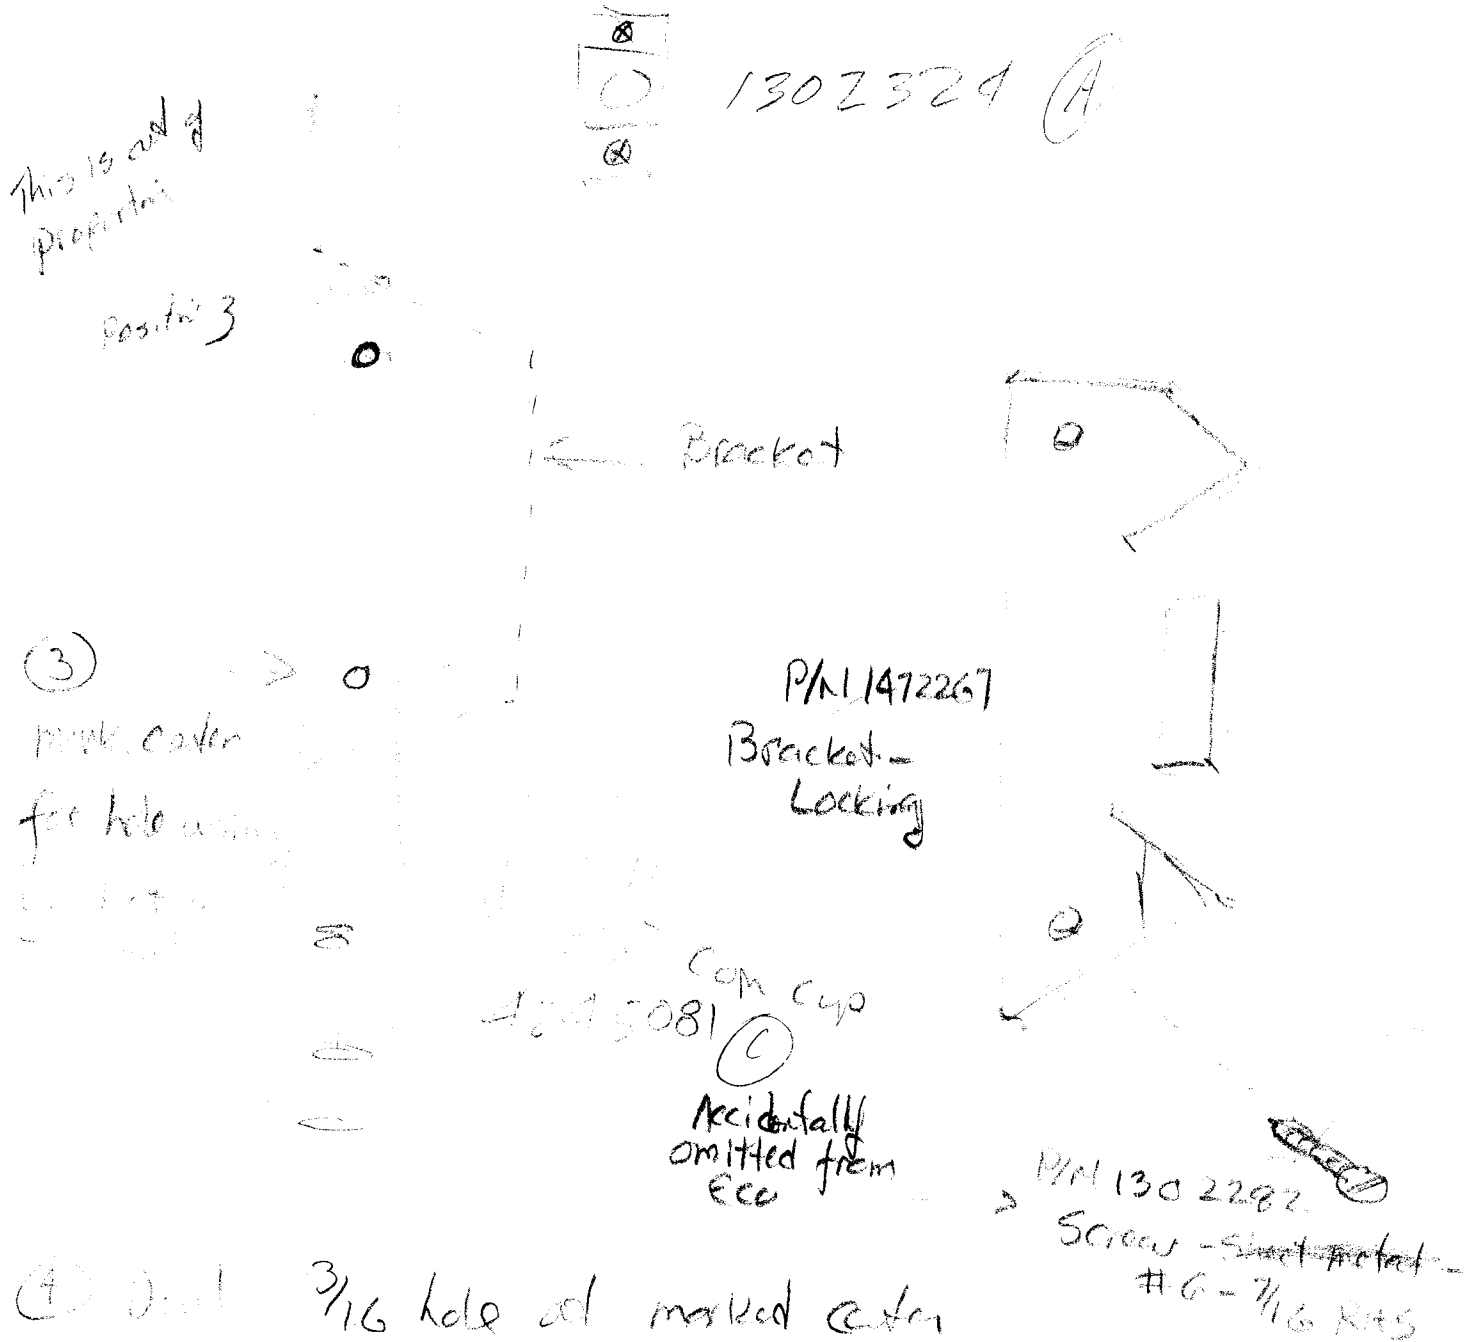 1302324 (A)
This is out of
Position 3
Bracket
(3)
mark center
for hole using
P/N 1472267
Bracket-
Locking
Cam Cup
081
(C)
Accidentally
omitted from
ECO
P/N 1302282
Screw - Sheet metal -
#6 - 7/16
(4) 3/16 hole at marked center